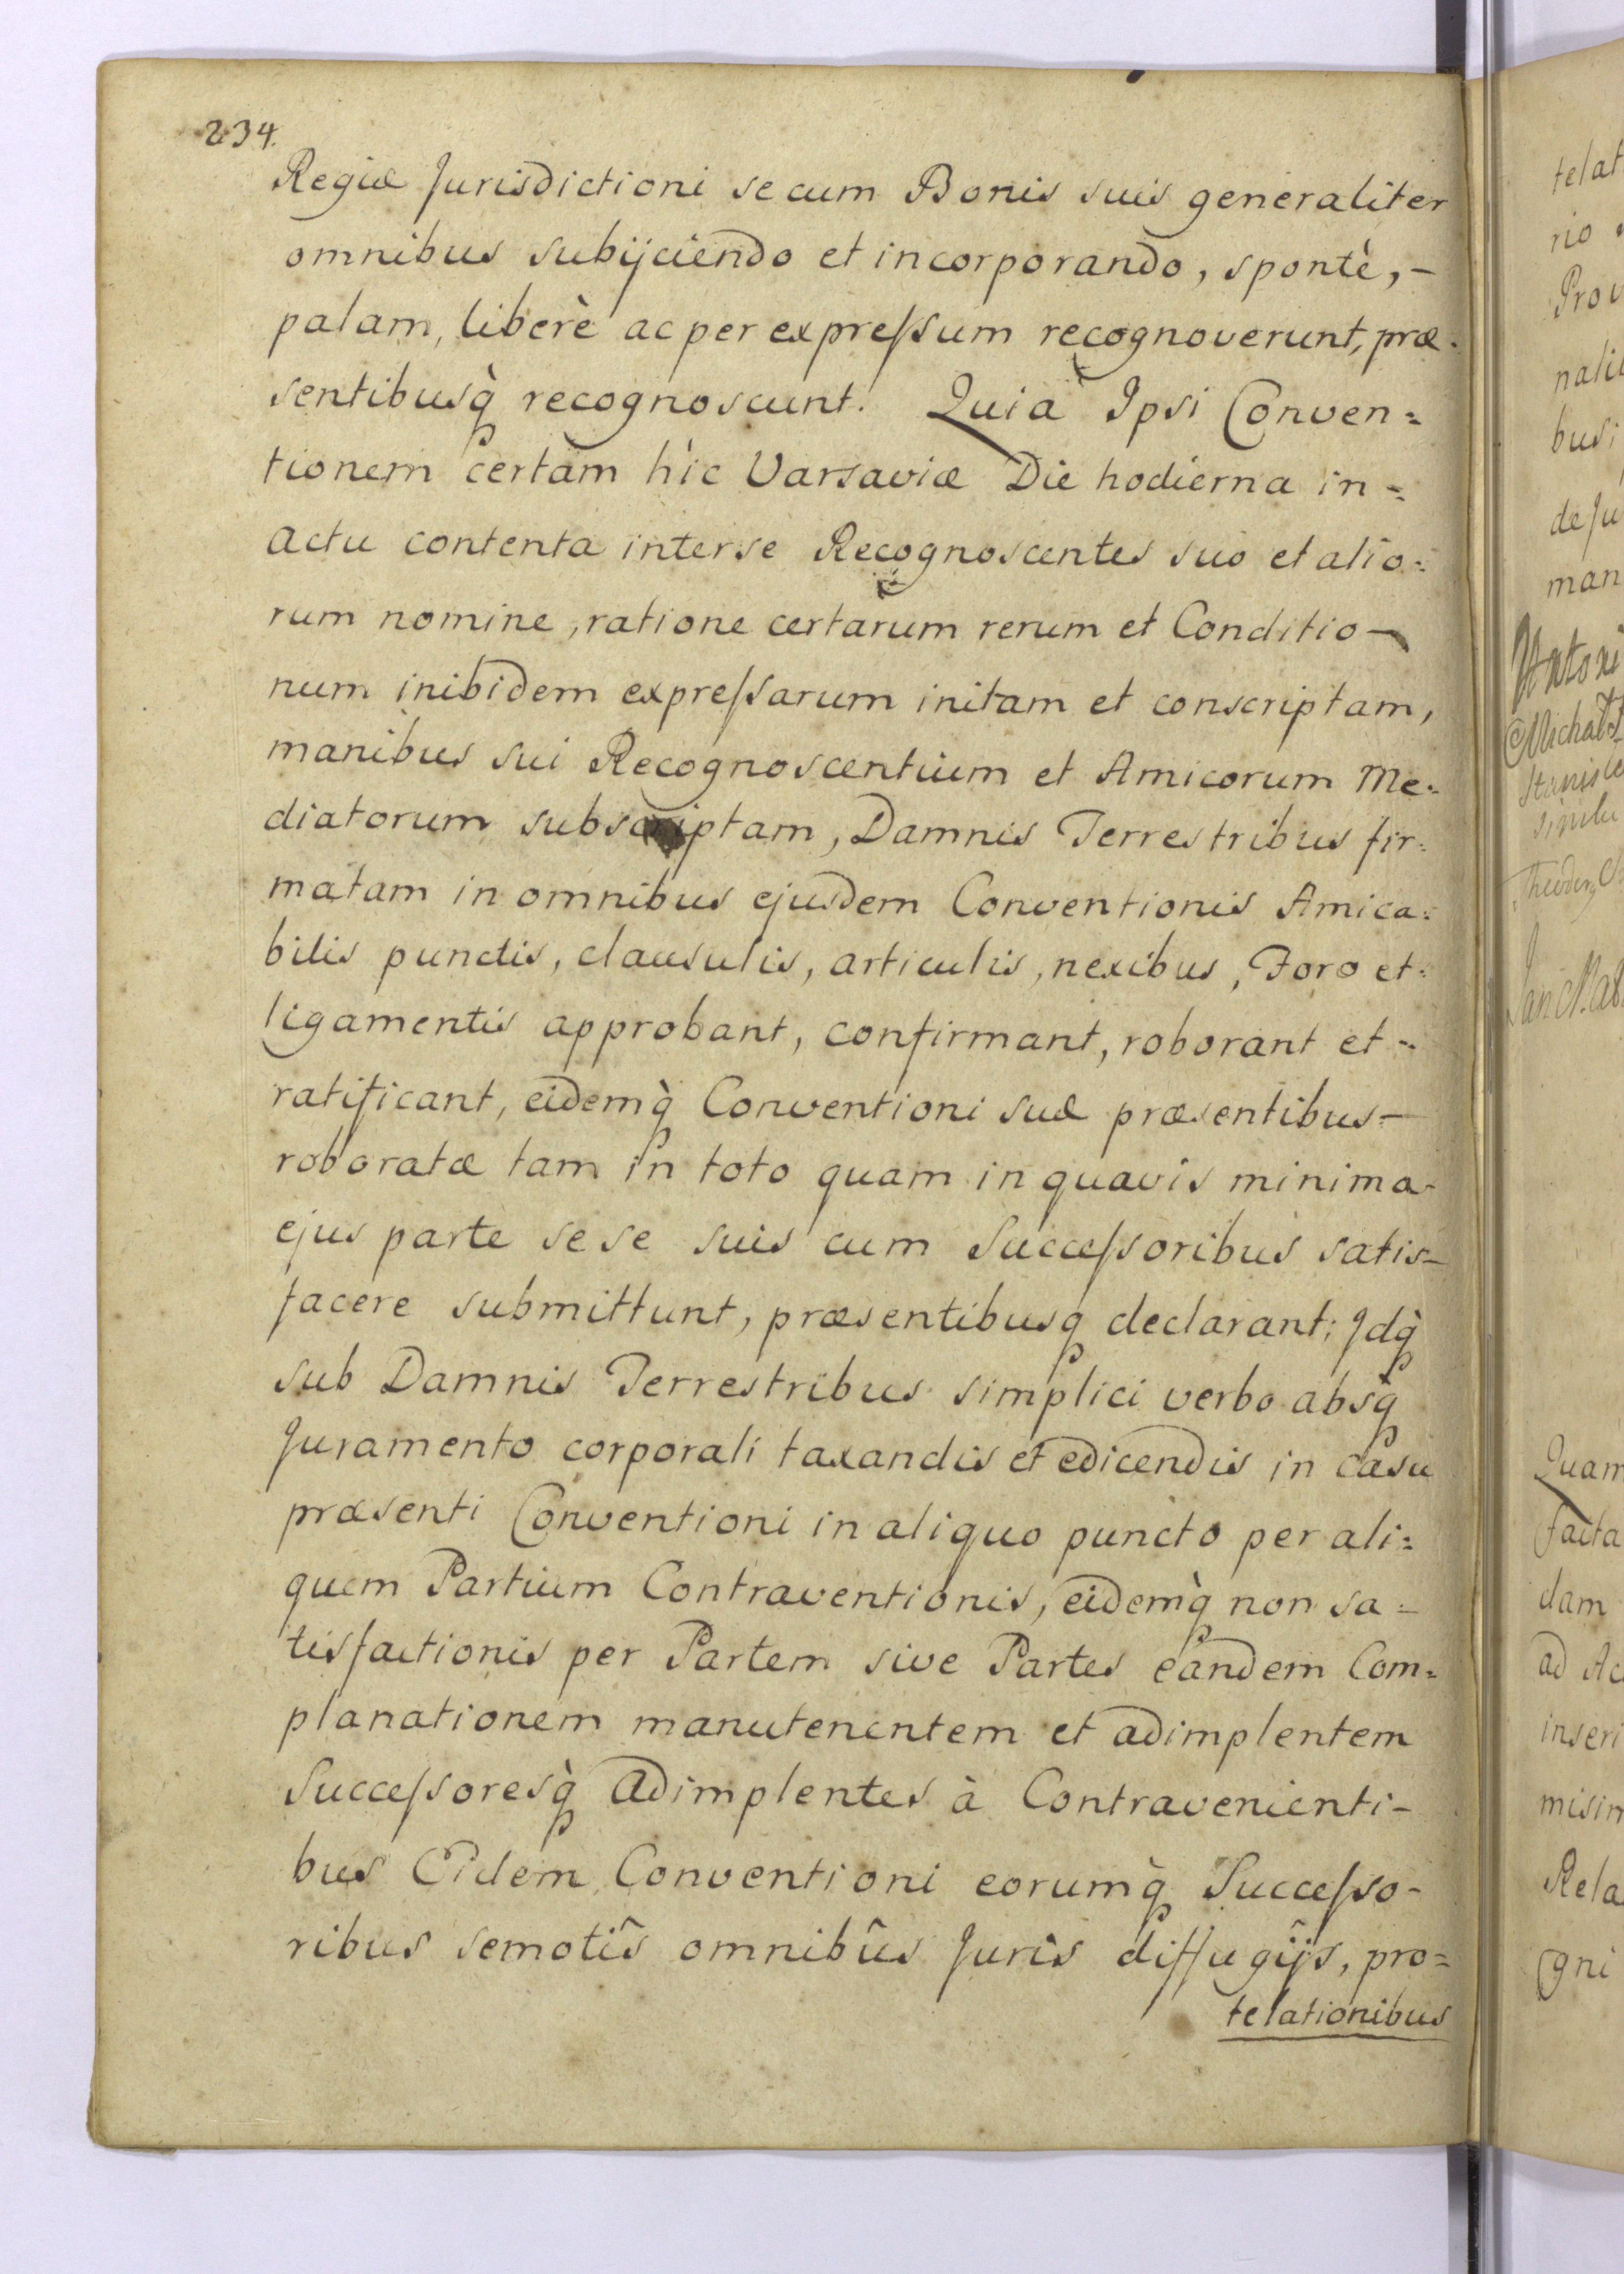 234.
Regiæ Jurisdictioni se cum Bonis suis generaliter
omnibus subijciendo et incorporando, spontè, -
palam, liberè ac per expressum recognoverunt, præ-
sentibusq̀ recognoscunt. Quia Ipsi Conven=
tionem certam hìc Varsaviæ Die hodierna in=
actu contenta inter se Recognoscentes suo et alio=
rum nomine, ratione certarum rerum et Conditio-
num inibidem expressarum initam et conscriptam,
manibus sui Recognoscentium et Amicorum Me=
diatorum subscriptam, Damnis Terrestribus fir=
matam in omnibus ejusdem Conventionis Amica=
bilis punctis, clausulis, articulis, nexibus, Foro et=
ligamentis approbant, confirmant, roborant et=
ratificant, eidemq̀ Conventioni suæ præsentibus-
roboratæ tam in toto quam in quavis minima-
ejus parte se se suis cum Successoribus satis-
facere submittunt, præsentibusq declarant; Jdq̀
sub Damnis Terrestribus simplici verbo absq̀
Juramento corporali taxandis et edicendis in casu
præsenti Conventioni in aliquo puncto per ali=
quem Partium Contraventionis, eidemq̀ non sa=
tisfactionis per Partem sive Partes eandem Com=
planationem manutenentem et adimplentem
Successoresq̀ Adimplentes à Contravenienti-
bus Eidem Conventioni eorumq̀ Successo-
ribus semotîs omnibûs Juris diffugîjs, pro=
telationibus
telat
rio
Prov
nali
busi
de Ju
man
Antoni
Michał
Stanis
Quam
facta
dam
ad Ac
inseri
misin
Rela
gni